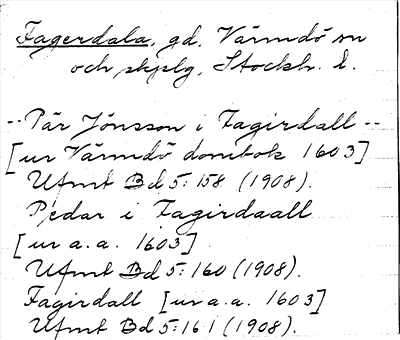 Fagerdala, gd, Värmdö sn
och skplg, Stockh. l.
-- Pär Jönsson i Fagirdall --
[ur Värmdö dombok 1603]
Ufmt Bd 5:158 (1908).
Pedar i Fagirdaall
[ur a.a. 1603]
Ufmt Bd 5:160 (1908).
Fagirdall [ur a.a. 1603]
Ufmt Bd 5:161 (1908).